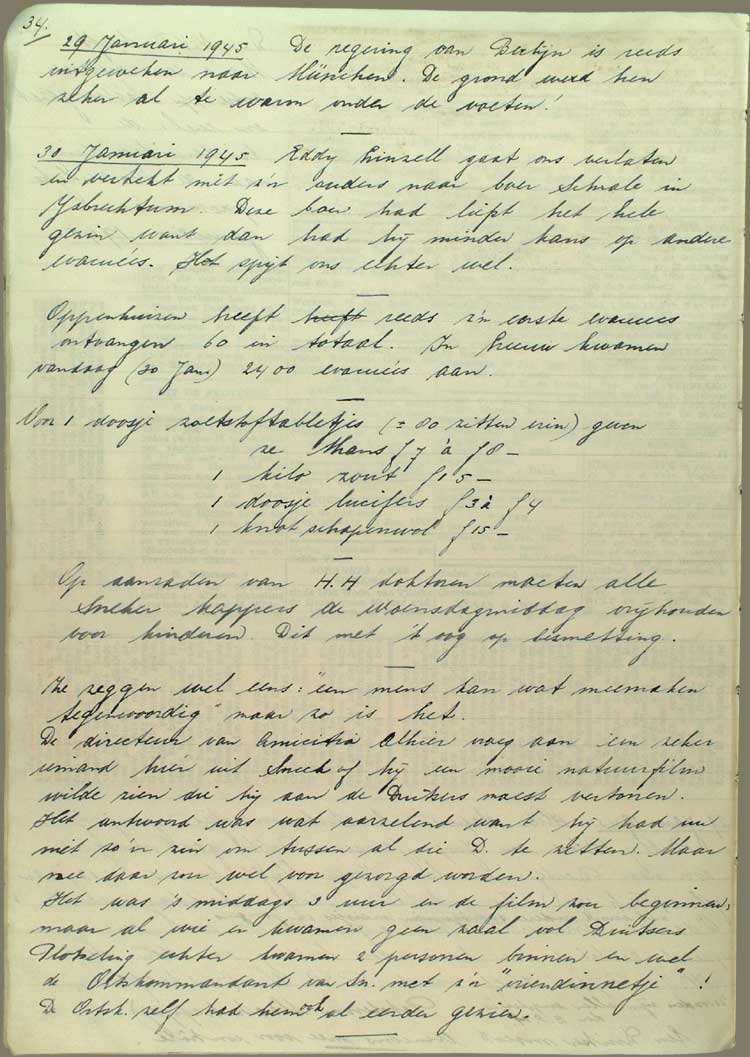 34.
29 Januari 1945 De regering van Berlijn is reeds
uitgeweken naar München. De grond werd hen
zeker al te warm onder de voeten!
30 Januari 1945 Eddy gaat ons verlaten
en vertrekt met z'n ouders naar boer Schrale in
Ysbrechtum. Deze boer had liefst het hele
gezin want dan had hij minder kans op andere
evacués. Het spijt ons echter wel.
Oppenhuizen heeft heeft reeds z'n eerste evacués
ontvangen 60 in totaal. In Sneew kwamen
vandaag (30 Jan) 2400 evacués aan.
Voor 1 doosje zoetstoftabletjes (± 80 zitten erin) geven
ze thans f 7 à f 8 -
1 kilo zout f 15 -
1 doosje lucifers f 3 à f 4
1 knot schapenwol f 15 -
Op aanraden van H.H doktoren moeten alle
Sneker kappers de Woensdagmiddag vrijhouden
voor kinderen. Dit met 't oog op besmetting.
Ze zeggen wel eens: "een mens kan wat meemaken
tegenwoordig" maar zo is het.
De directeur van Amicitia alhier vroeg aan een zeker
iemand hier uit Sneek of hij een mooie natuurfilm
wilde zien die hij aan de Duitsers moest vertonen.
Het antwoord was wat aarzelend want hij had nu
niet zo'n zin om tussen al die D. te zitten. Maar
nee daar zou wel voor gezorgd worden.
Het was 's middags 3 uur en de film zou beginnen,
maar al wie er kwamen geen zaal vol Duitsers
Plotseling echter kwamen 2 personen binnen en wel
de Ortskommandant van Sn. met z'n "vriendinnetje" !
De Ortsk. zelf had hem ook al eerder gezien.